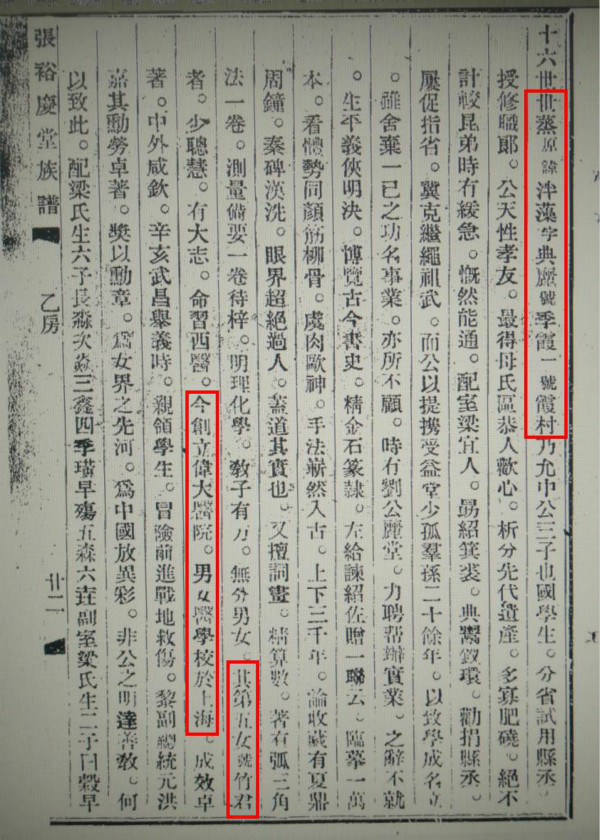 十六世世蒸原諱泮藻字典麗號季霞一號霞村乃允中公三子也國學生。分省試用縣丞
授修職郞。公天性孝友。最得母氏區恭人歡心。析分先代遺產。多寡肥磽。絕不
計較昆弟時有緩急。慨然能通。配室梁宜人。勗紹箕裘。典鬻釵環。勸捐縣丞。
屢促指省。冀克繼繩祖武。而公以提携受益堂少孤羣孫二十餘年。以致學成名立
。雖舍棄一己之功名事業。亦所不顧。時有劉公麗堂。力聘帮辦實業。之辭不就
。生平義俠明決。博覽古今書史。精金石篆隷。左給諫紹佐贈一聯云。臨摹一萬
本。看體勢同顏筋柳骨。虞肉歐神。手法嶄然入古。上下三千年。論收藏有夏鼎
周鐘。秦碑漢洗。眼界超絕過人。蓋道其實也。又擅詞畫。精算數。著有弧三角
法一卷。測量備要一卷待梓。明理化學。敎子有方。無分男女。其第五女號竹君
者。少聰慧。有大志。命習西醫。今創立偉大醫院。男女醫學校於上海。成效卓
著。中外咸欽。辛亥武昌舉義時。親領學生。冒險前進戰地救傷。黎副總統元洪
嘉其勳勞卓著。奬以勳章。爲女界之先河。爲中國放異彩。非公之明達善敎。何
以致此。配梁氏生六子長淼次焱三鑫四季璜早殤五森六垚副室梁氏生二子曰穀早
張裕慶堂族譜
乙房
廿二